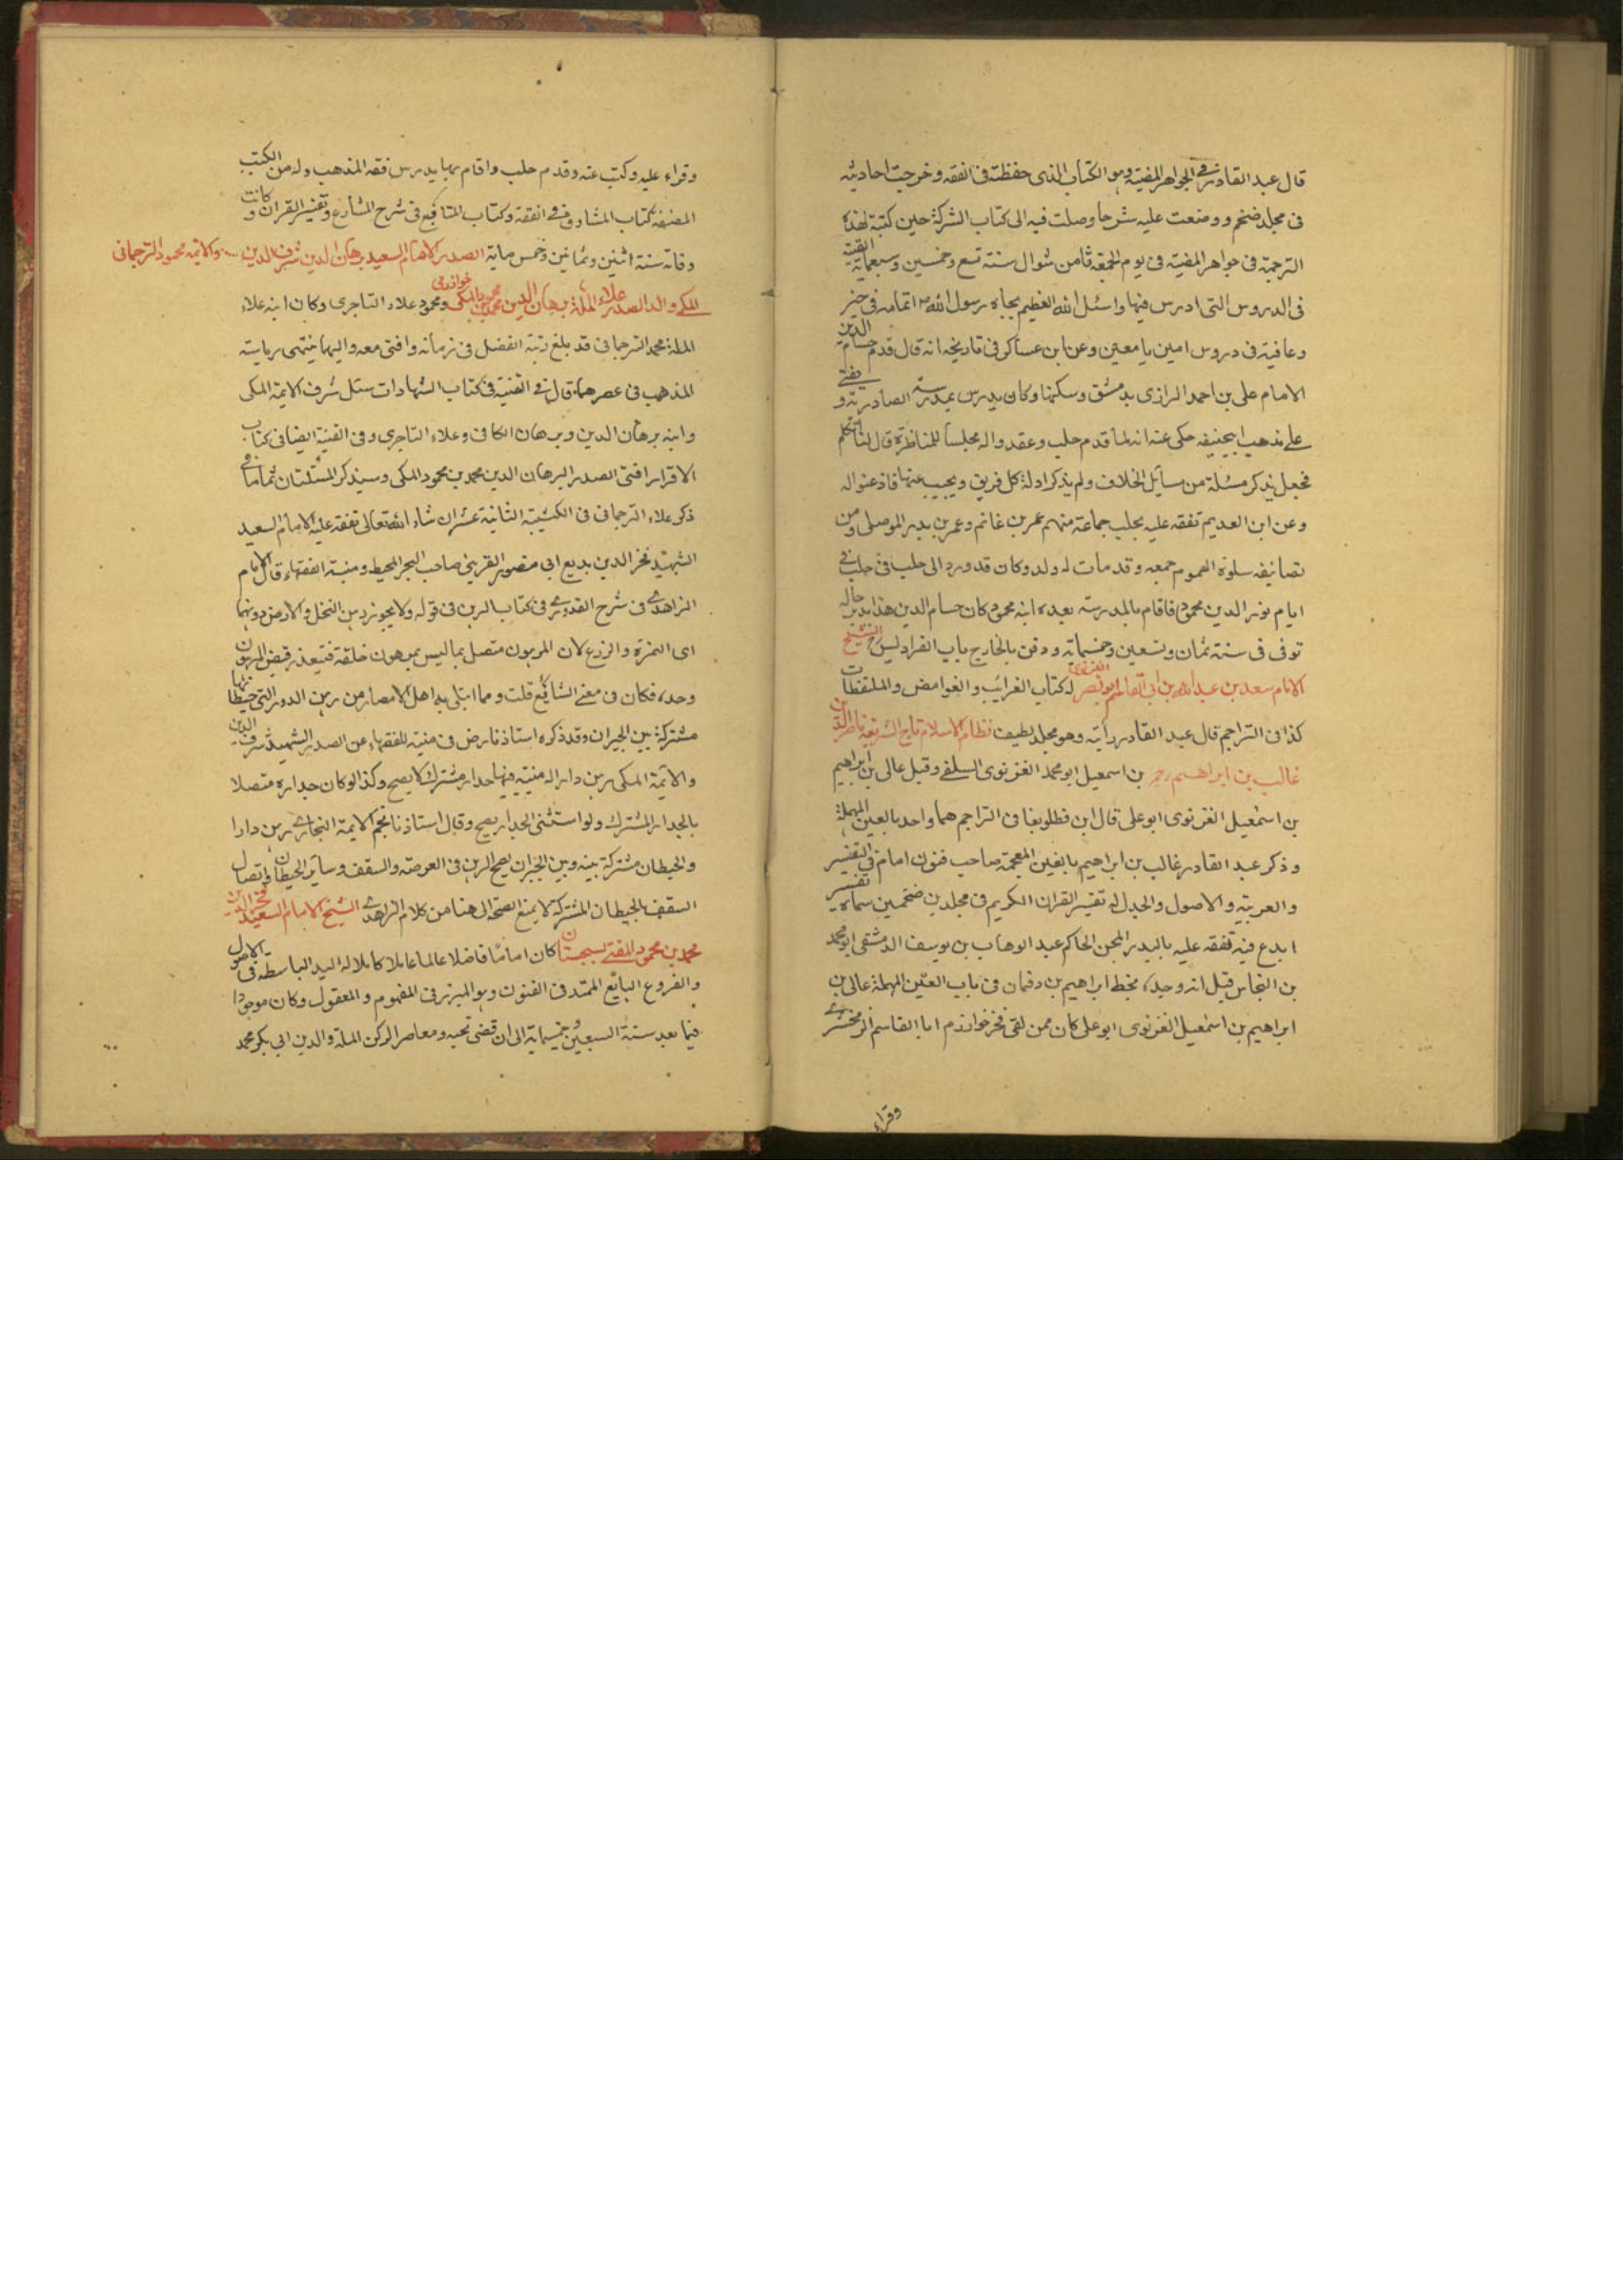 قال عبد القادر في الجواهر المضية وهو الكتاب الذى حفظته فى الفقه وخرجت احاديثه
فى مجلد ضخم ووضعت عليه شرحا وصلت فيه الى كتاب الشركة حين كتبة لهذه
الترجمة فى جواهر المضية فى يوم الجمعة ثامن شوال سنة تسع وخمسين وسبعماية
فى الدروس التى ادرس فيها واسئل الله العظيم بجاه رسول الله اتمامه فى خير
وعافية فى دروس امين يا معين وعن ابن عساكر فى تاريخه انه قال قدم حسام الدين
الامام على بن احمد الرازى بدمشق وسكنها وكان يدرس بمدرسة الصادرية و يفتى
على مذهب ابيحنيفه حكى عنه انه لما قدم حلب وعقد واله مجلسا للمناظرة قال لنا نتكلم
فجعل يذكر مسئلة من مسايل الخلاف ولم يذكر ادلة كل فريق ويجيب عنها فاذعنوا له
وعن ابن العديم تفقه عليه بحلب جماعة منهم عمر بن غانم وعمر بن بدر الموصلى ومن
تصانيفه سلوة الهموم جمعه وقد مات له ولد وكان قد ورد الى حلب فى
ايام نور الدين محمود فاقام بالمدرسة بعده ابنه محمود كان حسام الدين هذا
توفى فى سنة ثمان وتسعين وخمسمائة ودفن بالخارج باب الفراديس الشيخ
الامام سعد بن عبد الله بن ابى القاسم ابو نصر الغزنوى له كتاب الغرائب والغوامض والملتقطات
كذا فى التراجم قال عبد القادر رأيته وهو مجلد لطيف نظام الاسلام تاج الشريعة ناصر الدين
غالب بن ابراهيم بن اسمعيل ابو محمد الغزنوى السلفى وقيل عالى بن ابراهيم
بن اسمعيل الغزنوى ابو على قال ابن قطلوبغا فى التراجم هما واحد بالعين المهملة
وذكر عبد القادر غالب بن ابراهيم بالغين المعجمة صاحب فنون امام فى التفسير
والعربية والاصول والجدل له تفسير القران الكريم فى مجلدين ضخمين سماه تفسير
ابدع فيه تفقه عليه بالبدر المجن الحاكم عبد الوهاب بن يوسف الدمشقى ابو محمد
بن النحاس قيل انه وجد بخط ابراهيم بن دقمان فى باب العين المهملة عالى بن
ابراهيم بن اسمعيل الغزنوى ابو على كان ممن لقى فخر خوارزم ابا القاسم الزمخشرى
وقراء
وقراء عليه وكتب عنه وقدم حلب واقام بها يدرس فقه المذهب وله من الكتب
المصنفة كتاب المشارع فى الفقه وكتاب المنابع فى شرح المشارع وتفسير القران وكانت
وفاته سنة اثنين وثمانين وخمس ماية الصدر الامام السعيد برهان الدين شرف الدين والائمة محمود الترجمانى
المكى والد الصدر علاء الملة برهان الدين محمد خوارزمى المكى ومحمود علاء التاجرى وكان ابنه علاء
الملة محمد الترجمانى قد بلغ رتبة الفضل فى زمانه وافتى معه واليهما ينتهى رياسة
المذهب فى عصرهما قال فى القنية فى كتاب الشهادات سئل شرف الائمة المكى
وابنه برهان الدين وبرهان الكافى وعلاء التاجرى وفى القنية ايضا فى كتاب
الاقرار افتى الصدر البرهان الدين محمد بن محمود المكى وسيذكر المسئلتان
ذكر علاء الترجمانى فى الكتيبة الثانية عشر ان شاء الله تعالى تفقه عليه الامام السعيد
الشهيد فخر الدين بديع ابى منصور القزينى صاحب البحر المحيط ومنية الفقهاء قال الامام
الزاهدى فى شرح القدورى فى كتاب الرهن فى قوله ولا يجوز رهن النخل والارض دونهما
اى الثمرة والزرع لان المرهون متصل بما ليس بمرهون خلقة فتعذر قبض المرهون
وحده فكان فى معنى الشايع قلت ومما ابتلى به اهل الامصار من رهن الدور التى حيطانها
مشتركة بين الجيران وقد ذكره استاذنا رض فى منية للفقهاء عن الصدر الشهيد شرف الدين
والائمة المكى رهن دارا له مبنية فيها جدار مشترك لا يصح وكذا لو كان جداره متصلا
بالجدار المشترك ولو استثنى الجدار يصح وقال استاذنا نجم الائمة البخارى رهن دارا
والحيطان مشتركة بينه وبين الجيران يصح الرهن فى العرصة والسقف وساير الحيطان واتصال
السقف بالحيطان المشتركة لا يمنع الصحة الى هنا من كلام الزاهدى الشيخ الامام السعيد فخر الدين
محمد بن محمود المفتى بسجستان كان اماما فاضلا عالما عاملا كاملا له اليد الباسطة فى الاصول
والفروع البايع الممتد فى الفنون وهو المبرز فى المفهوم والمعقول وكان موجودا
فيما بعد سنة السبعين وخمسماية الى ان قضى نحبه ومعاصر الركن الملة والدين ابى بكر محمد